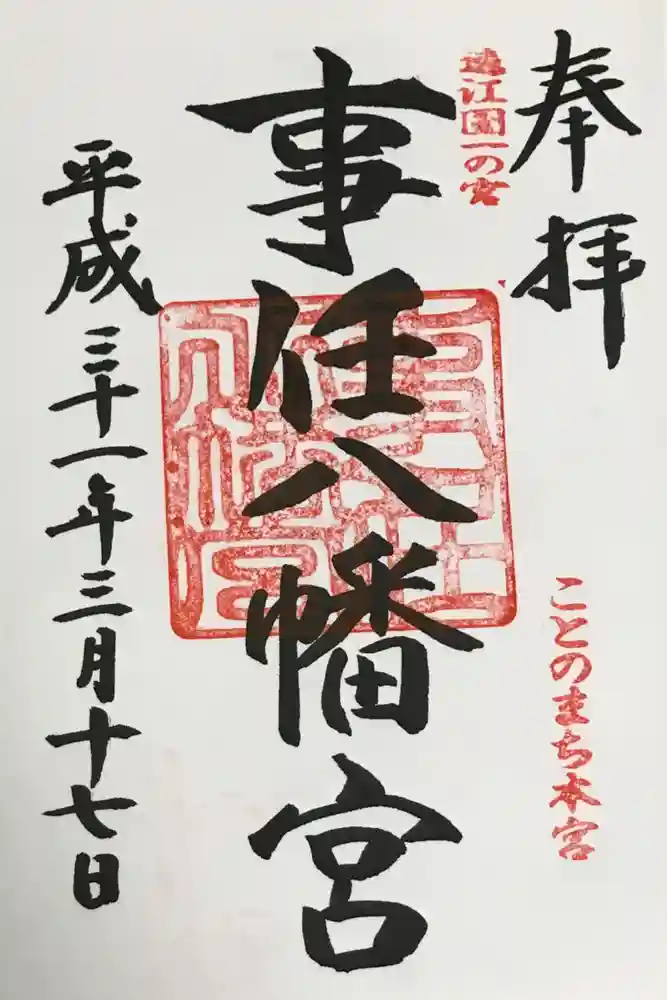 奉拝
遠江国一の宮
ことのまち本宮
事任八幡宮
平成三十一年三月十七日